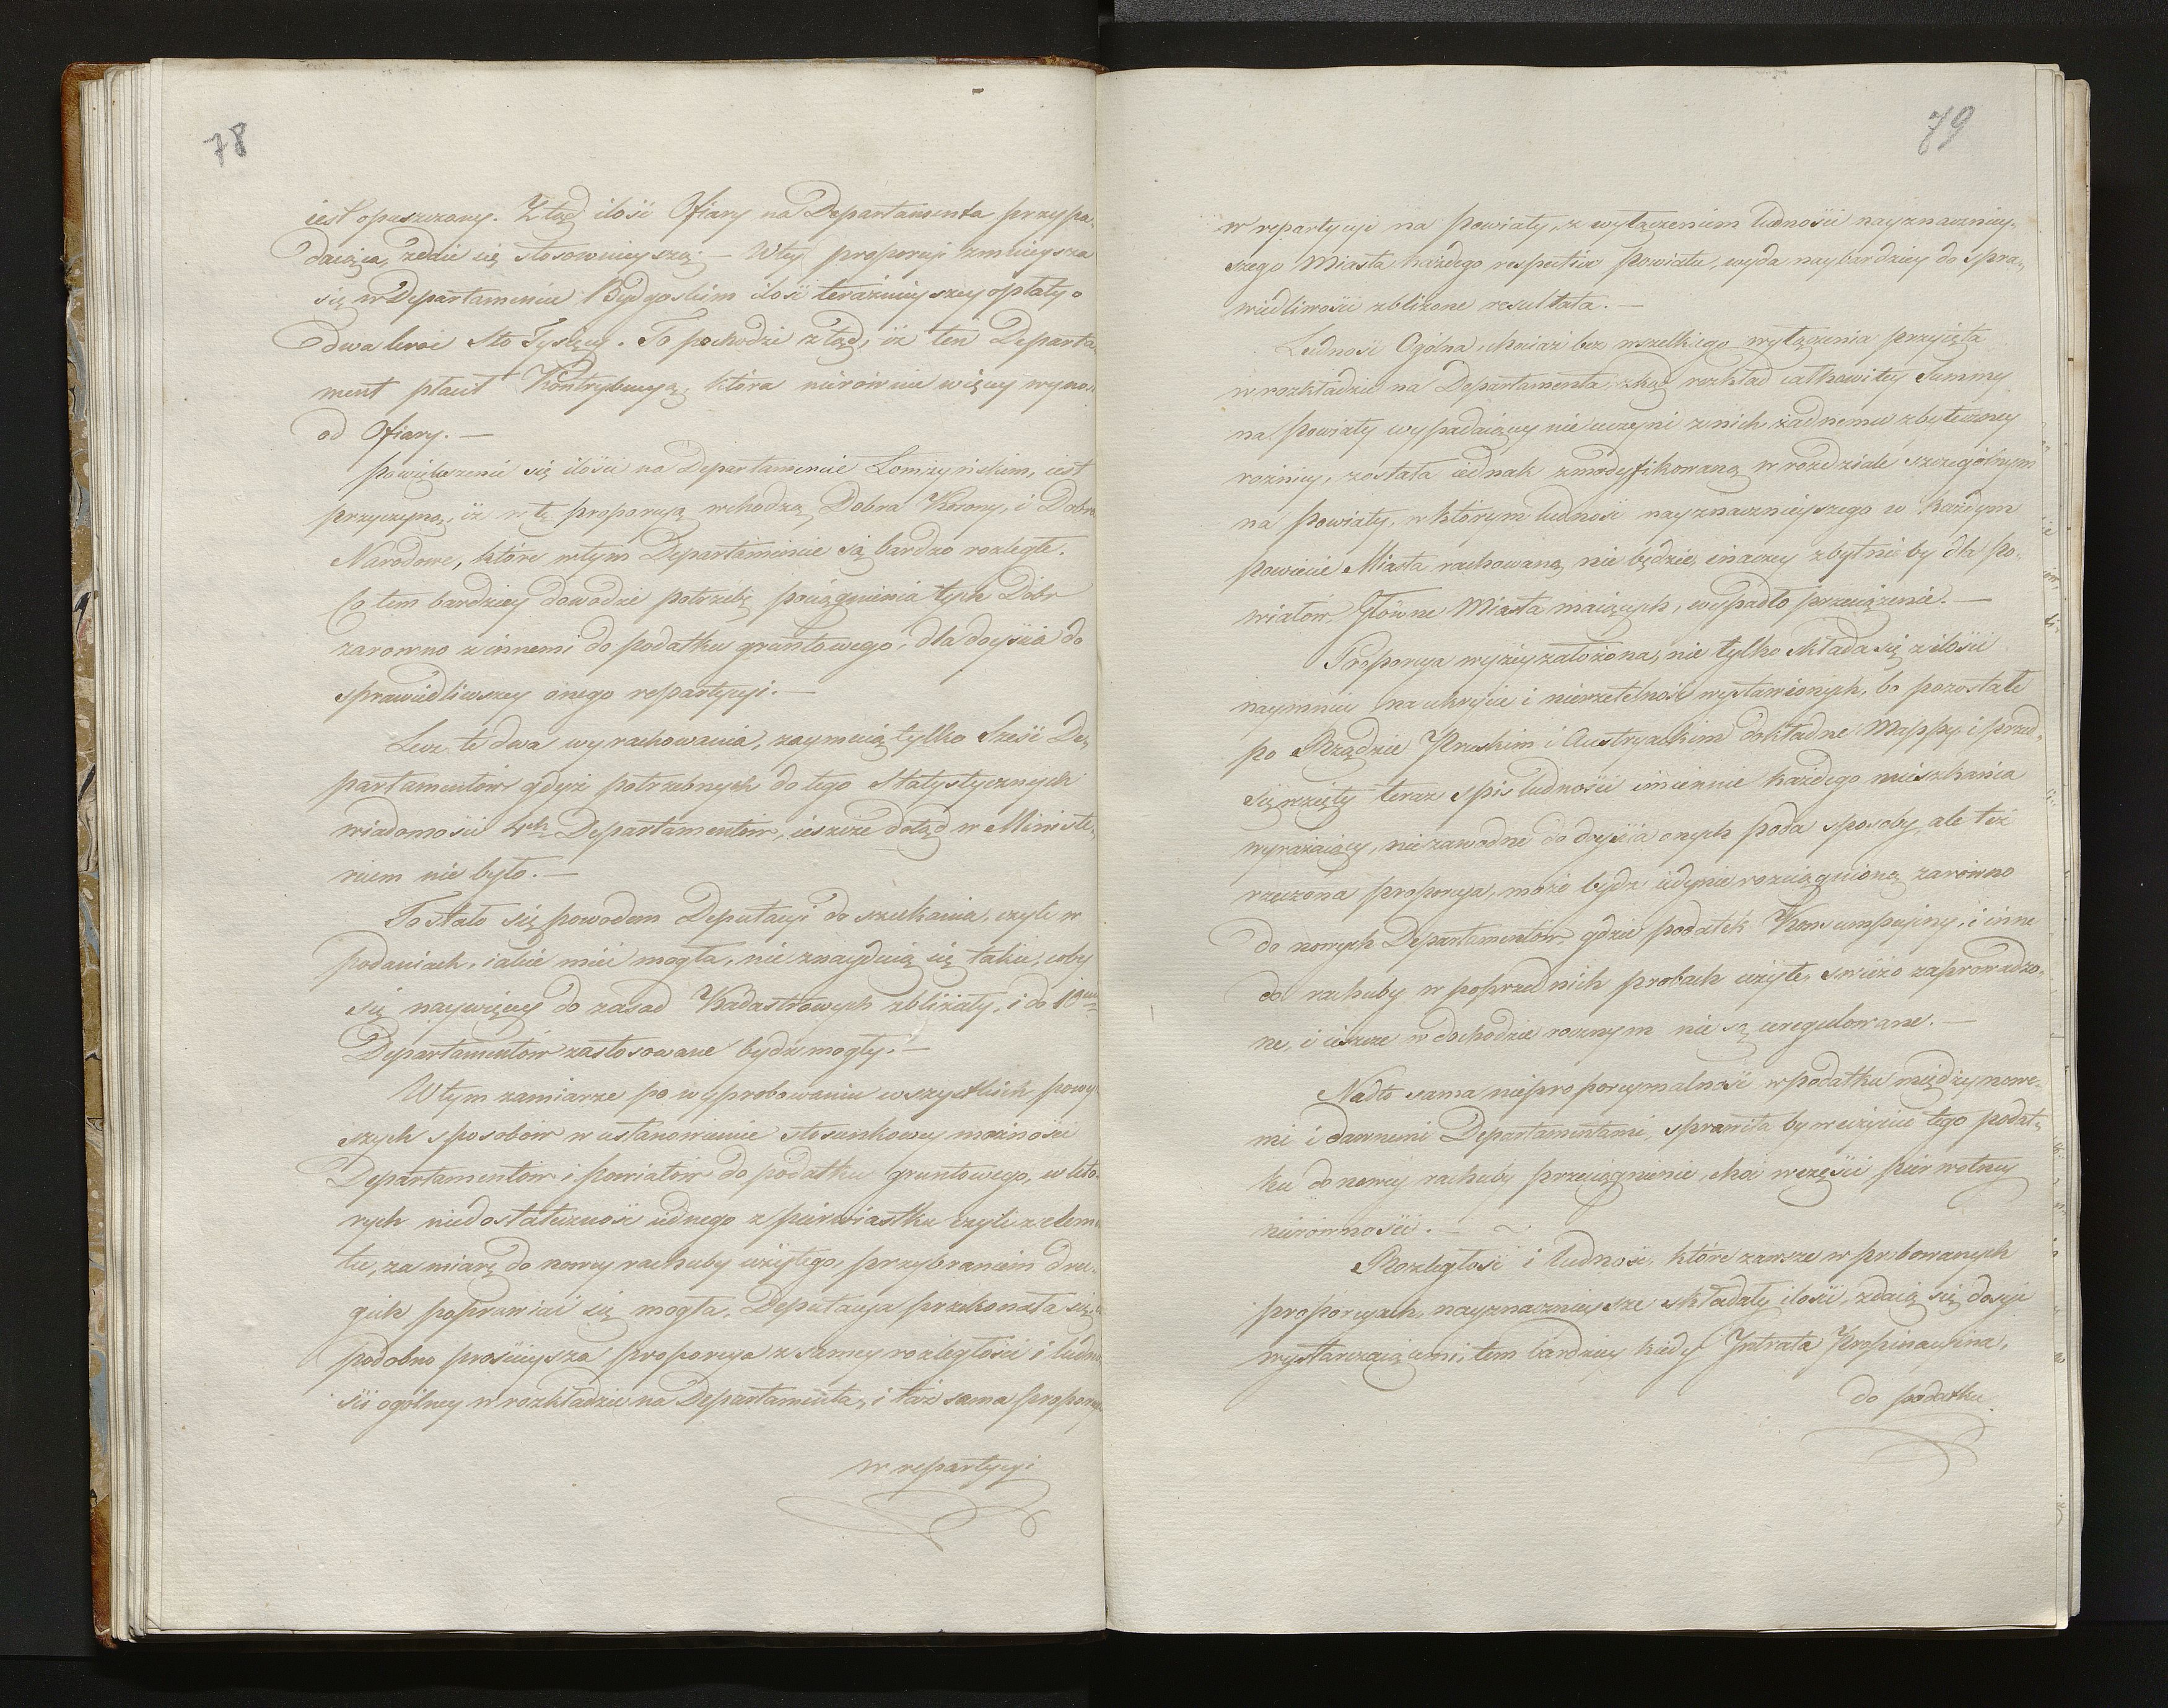 78
iest opuszczony. Ztąd ilość Ofiary na Departamenta przypa-
daiąca, zdaie się stosownieyszą. — W tey proporcyi zmnieysza
się w Departamencie Bydgoskim ilość teraźnieyszey opłaty o
dwakroć sto Tysięcy. To pochodzi ztąd, iż ten Departa-
ment płaci Kontrybucyą, która nierównie więcey wynosi
od Ofiary. —
powiększenie się ilości na Departamencie Łomżyńskim, iest
przyczyną, iż w tę proporcyą wchodzą Dobra Korony, i Dobra
Narodowe, które w tym Departamencie są bardzo rozległe.
Co tem bardziey dowodzi potrzebę pociągnienia tych Dóbr
zarowno z innemi do podatku gruntowego, dla doyścia do
sprawiedliwszey onego repartycyi. —
Lecz te dwa wyrachowania, zaymuią tylko sześć De-
partamentów gdyż potrzebnych do tego Statystycznych
wiadomości 4ch Departamentów, ieszcze dotąd w Ministe-
rium nie było. —
To stało się powodem Deputacyi do szukania, czyli w
podaniach, iakie mieć mogła, nie znaydują się takie, coby
się naywięcey do zasad Kadastrowych zbliżały, i do 10ciu
Departamentów zastosowane bydź mogły. —
W tym zamiarze po wyprobowaniu wszystkich powy-
szych sposobów w ustanowienie stosunkowey możności
Departamentów i powiatów do podatku gruntowego, w któ-
rych niedostateczność iednego z pierwiastku czyli z elemen
tu, za miarę do nowey rachuby użytego, przybraniem dru-
gich poprawiać się mogła, Deputacya przekonała się, iż
podobno prościeysza proporcya z samey rozległości i ludno
ści ogólney w rozkładzie na Departamenta, i taż sama proporcya
w repartycyi
79
w repartycyi na powiaty, z wyłączeniem ludności nayznacznie-
szego Miasta każdego respective powiatu, wyda naybardziey do spra-
wiedliwości zbliżone resultata. —
Ludność Ogólna, chociaż bez wszelkiego wyłączenia przyięta
w rozkładzie na Departamenta, zkąd rozkład całkowitey Summy
na powiaty wypadaiący nie uczyni z nich żadnemu zbyteczney
rożnicy, została iednak zmodyfikowaną w rozdziale szczególnym
na powiaty, w którym ludność nayznacznieyszego w każdym
powiecie Miasta rachowaną nie będzie, inaczey zbytnie by dla po-
wiatów Główne Miasta maiących, wypadło przeciążenie. —
Proporcya wyżey założona, nie tylko składa się z ilości
naymniey na ukrycie i nierzetelność wystawionych, bo pozostałe
po Rządzie Pruskim i Austryackim dokładne Mappy i przed-
sięwzięty teraz spis ludności imiennie każdego mieszkańca
wyrażaiący, niezawodne do doyścia onych poda sposoby, ale też
rzeczona proporcya, może bydź iedynie rozciągnioną zarówno
do nowych Departamentów, gdzie podatek Konsumpcyiny, i inne
do rachuby w poprzednich probach użyte, swieżo zaprowadzo-
ne, i ieszcze w dochodzie rocznym nie są uregulowane. —
Nadto sama nieproporcyonalność w podatku między nowe-
mi i dawnemi Departamentami, sprawiła by w użycie tego podat-
ku do nowey rachuby przeciągnienie, choć w części pierwotney
nierówności. —
Rozległość i ludność, które zawsze w probowanych
proporcyach, nayznacznieysze składały ilości, zdaią się dosyć
wystarczaiącemi, tem bardziey kiedy Intrata Propinacyina,
do podatku